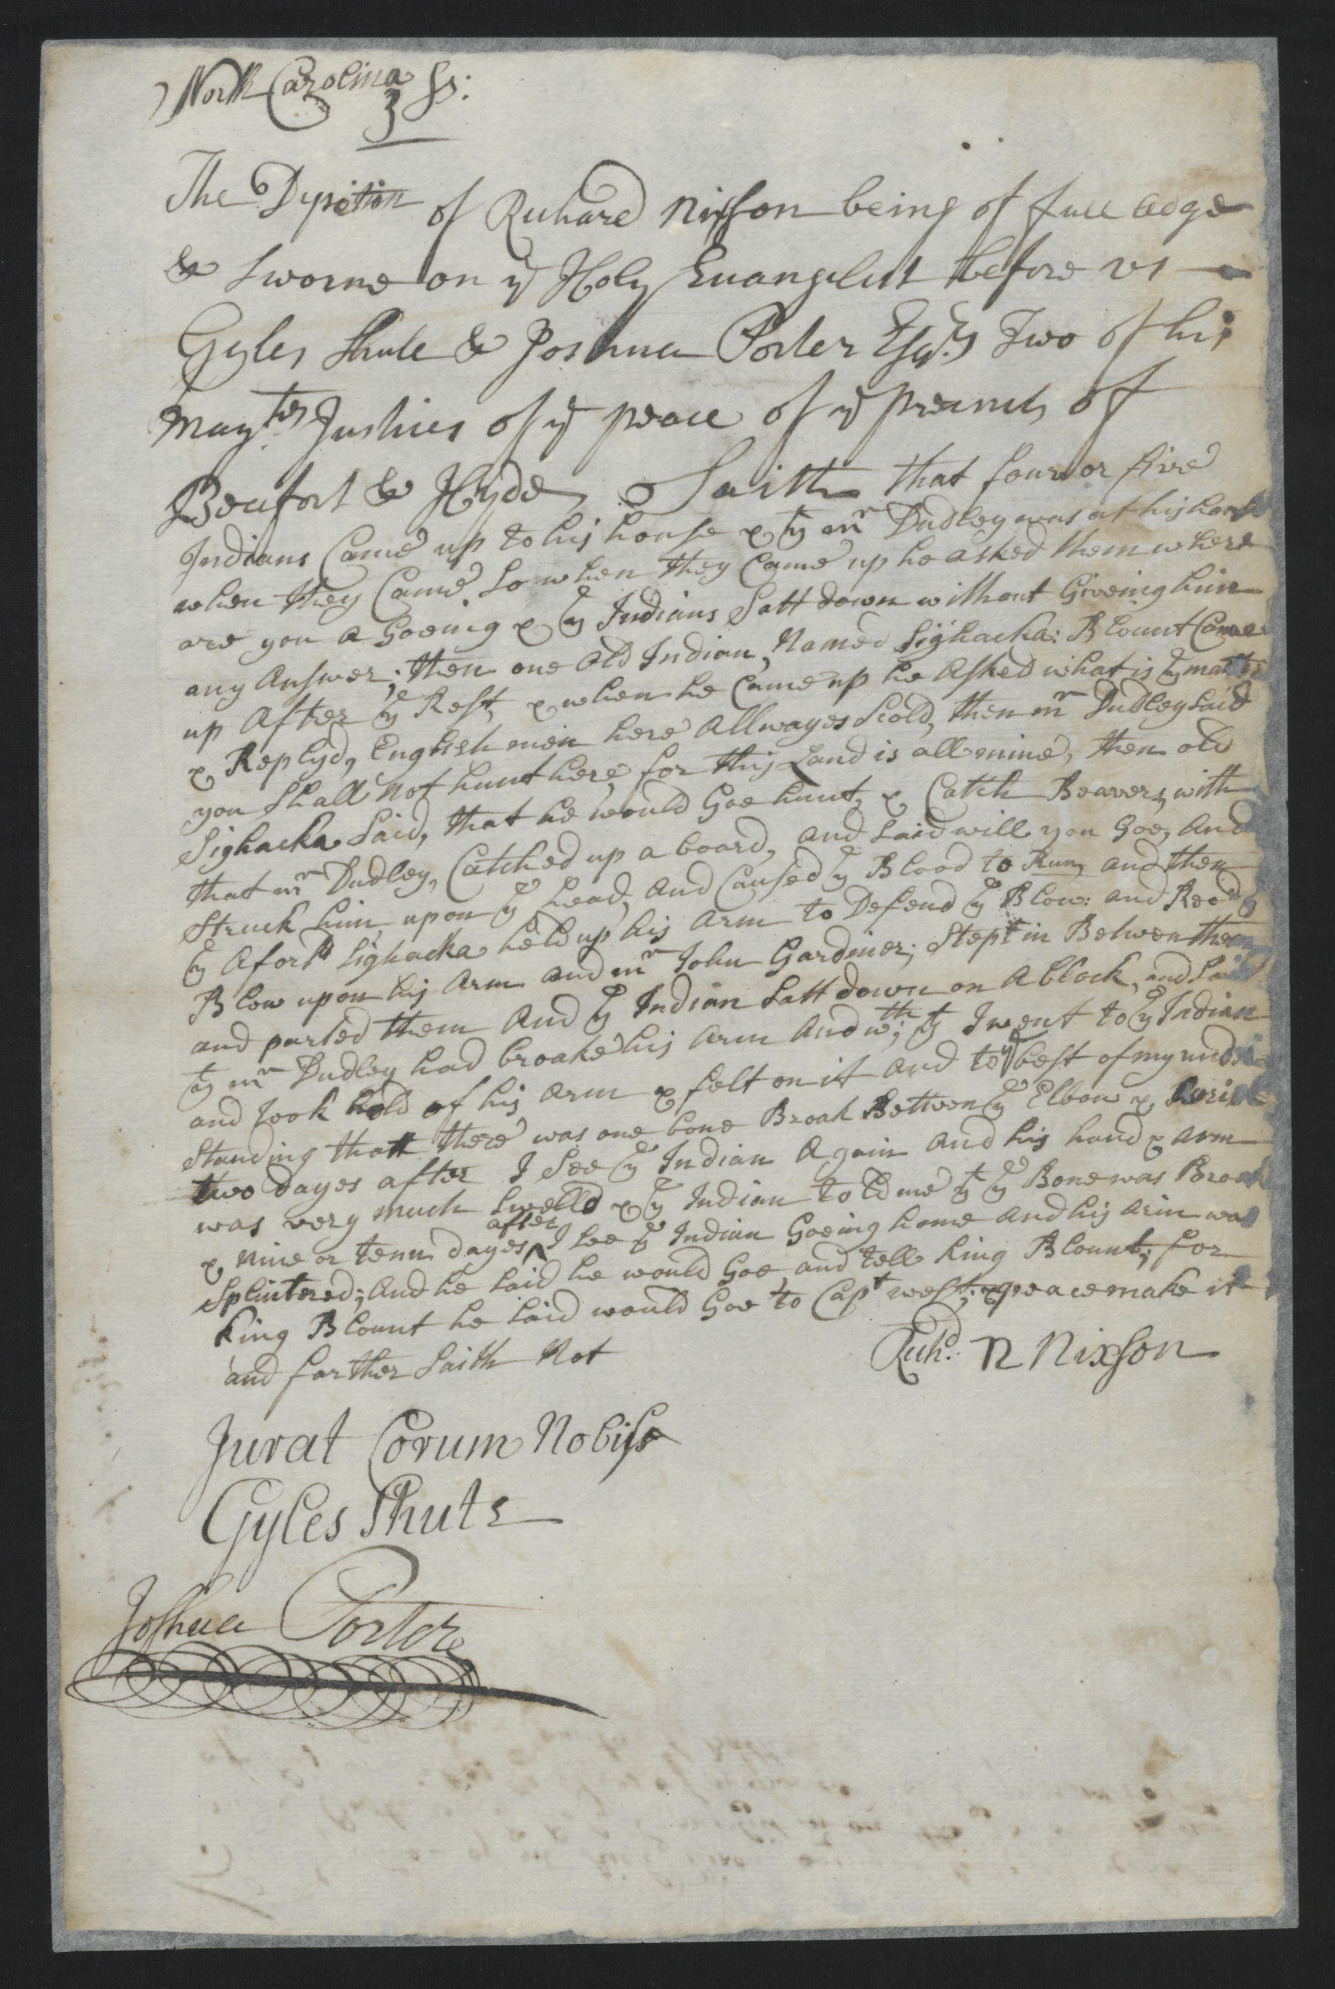 North Carolina ss:
The Dypotion of Richard Nixson being of full adge
& sworne on ye Holy Evangelist before us
Gyles Shute & Joshua Porter Esqrs Two of his
Maytes Justices of ye peace of ye precincts of
Beufort & Hyde, Saith that four or five
Indians Came up to his house & yt mr Dudley was at his house
when they Came, so when they Came up he asked them where
are you a Goeing & ye Indians Satt down without Giveing him
any Answer; then one old Indian, Named Sighacka: Blount Came
up After ye Rest, & when he Came up he Asked what is ye matter
& Replyd, English men here Allwayes Scold, then mr Dudley Said
you Shall not hunt here, for this Land is all mine, then old
Sighacka Said, that he would Goe hunt, & Catch Beavers, with
that mr Dudley, Catched up a board, and Said will you Goe, And
Struck him upon ye head, and Caused ye Blood to Run, and then
ye Aforsd Sighacka held up his Arm to Defend ye Blow: and Recd ye
Blow upon his Arm and mr John Gardiner; Stept in Between them
and parted them And ye Indian Satt down on A block, and Said
yt mr Dudley had broake his Arm And wth; yt I went to ye Indian
and Took hold of his Arm & felt on it And to ye best of my under
Standing thatt there was one bone Broak Between ye Elbow & Wrist
two dayes after I See ye Indian Again And his hand & Arm
was very much Swelld & ye Indian told me yt ye Bone was Broak
& Nine or tenn dayes after I See ye Indian Goeing home And his Arm was
Splintered; And he Said he would Goe and tell King Blount; for
King Blount he Said would Goe to Capt West; & peace make it
and farther Saith Not
Richd: N Nixson
Jurat Corum Nobiss
Gyles Shute
Joshua Porter